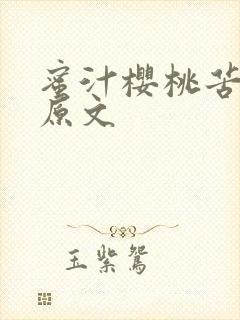 蜜汁樱桃苦
原文
玉紫鸳